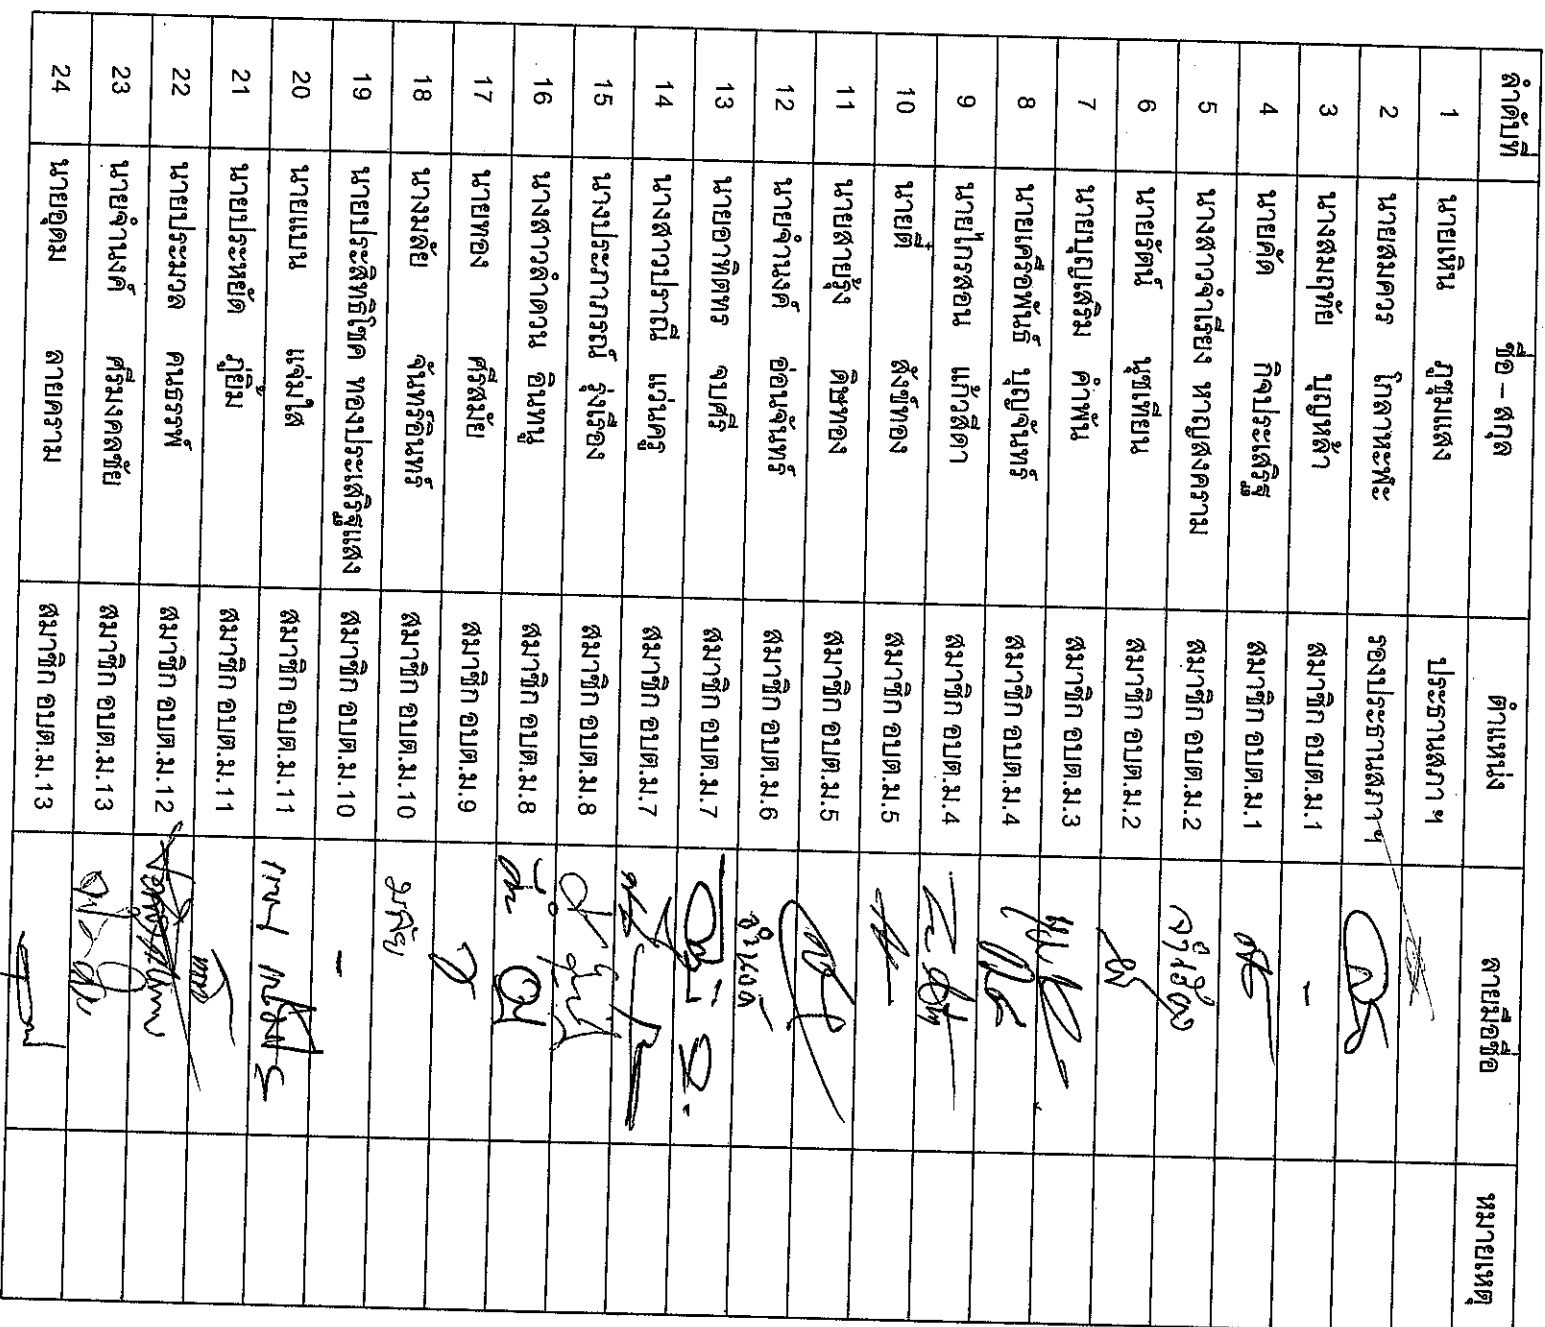 ลำดับที่ ชื่อ – สกุล ตำแหน่ง ลายมือชื่อ หมายเหตุ
1 นายเหิน ภูชุมแสง ประธานสภา ฯ
2 นายสมควร โกลาหะพะ รองประธานสภา ฯ
3 นางสมฤทัย บุญหล้า สมาชิก อบต.ม.1 -
4 นายคัด กิจประเสริฐ สมาชิก อบต.ม.1
5 นางสาวจำเรียง หาญสงคราม สมาชิก อบต.ม.2 จำเรียง
6 นายรัตน์ นุชเทียน สมาชิก อบต.ม.2
7 นายบุญเสริม คำพัน สมาชิก อบต.ม.3
8 นายเครือพันธ์ บุญจันทร์ สมาชิก อบต.ม.4
9 นายไกรสอน แก้วสีดา สมาชิก อบต.ม.4
10 นายตี๋ สังข์ทอง สมาชิก อบต.ม.5
11 นายสายรุ้ง ดิษทอง สมาชิก อบต.ม.5
12 นายจำนงค์ อ่อนจันทร์ สมาชิก อบต.ม.6 จำนงค์
13 นายอาทิตทร จบศรี สมาชิก อบต.ม.7
14 นางสาวปราณี แว่นครู สมาชิก อบต.ม.7
15 นางประภาภรณ์ รุ่งเรือง สมาชิก อบต.ม.8
16 นางสาวลำดวน อินทนู สมาชิก อบต.ม.8
17 นายทอง ศรีสมัย สมาชิก อบต.ม.9
18 นางมลัย จันทร์อินทร์ สมาชิก อบต.ม.10 มลัย
19 นายประสิทธิโชค ทองประเสริฐแสง สมาชิก อบต.ม.10 -
20 นายแบน แจ่มใส สมาชิก อบต.ม.11
21 นายประหยัด ภู่ยิ้ม สมาชิก อบต.ม.11
22 นายประมวล คนธรรพ์ สมาชิก อบต.ม.12
23 นายจำนงค์ ศรีมงคลชัย สมาชิก อบต.ม.13
24 นายอุดม ลายคราม สมาชิก อบต.ม.13